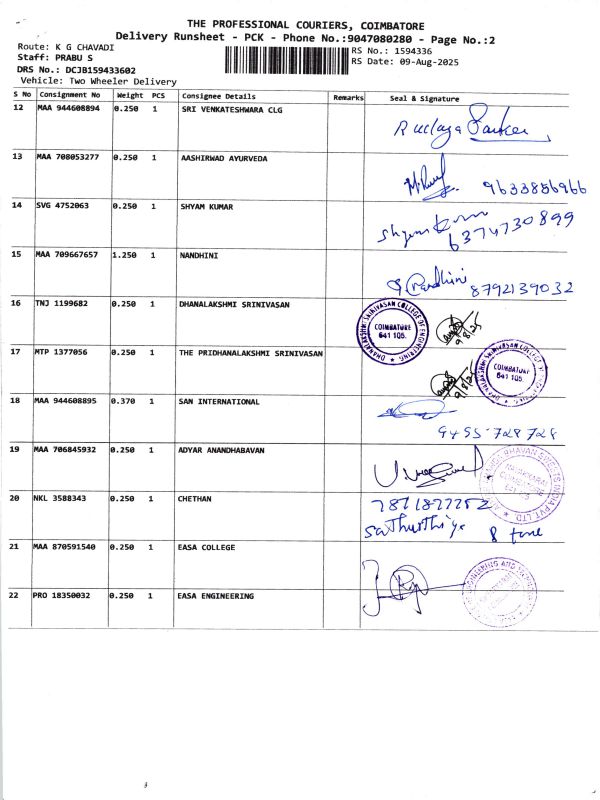 THE PROFESSIONAL COURIERS, COIMBATORE
Delivery Runsheet - PCK - Phone No.:9047080280 - Page No.:2
Route: K G CHAVADI
RS No.: 1594336
Staff: PRABU S
RS Date: 09-Aug-2025
DRS No.: DCJB159433602
Vehicle: Two Wheeler Delivery
S No Consignment No Weight PCS Consignee Details Remarks Seal & Signature
12 MAA 944608894 0.250 1 SRI VENKATESHWARA CLG
13 MAA 708053277 0.250 1 AASHIRWAD AYURVEDA
9633886966
14 SVG 4752063 0.250 1 SHYAM KUMAR
6374730899
15 MAA 709667657 1.250 1 NANDHINI
Nandhini 8792139032
16 TNJ 1199682 0.250 1 DHANALAKSHMI SRINIVASAN
DHANALAKSHMI SRINIVASAN COLLEGE OF ENGINEERING
COIMBATORE
641 105.
9/8/25
17 MTP 1377056 0.250 1 THE PRIDHANALAKSHMI SRINIVASAN
COIMBATORE
641 105.
9/8/25
18 MAA 944608895 0.370 1 SAN INTERNATIONAL
9455728728
19 MAA 706845932 0.250 1 ADYAR ANANDHABAVAN
20 NKL 3588343 0.250 1 CHETHAN
7871877252
21 MAA 870591540 0.250 1 EASA COLLEGE
22 PRO 18350032 0.250 1 EASA ENGINEERING